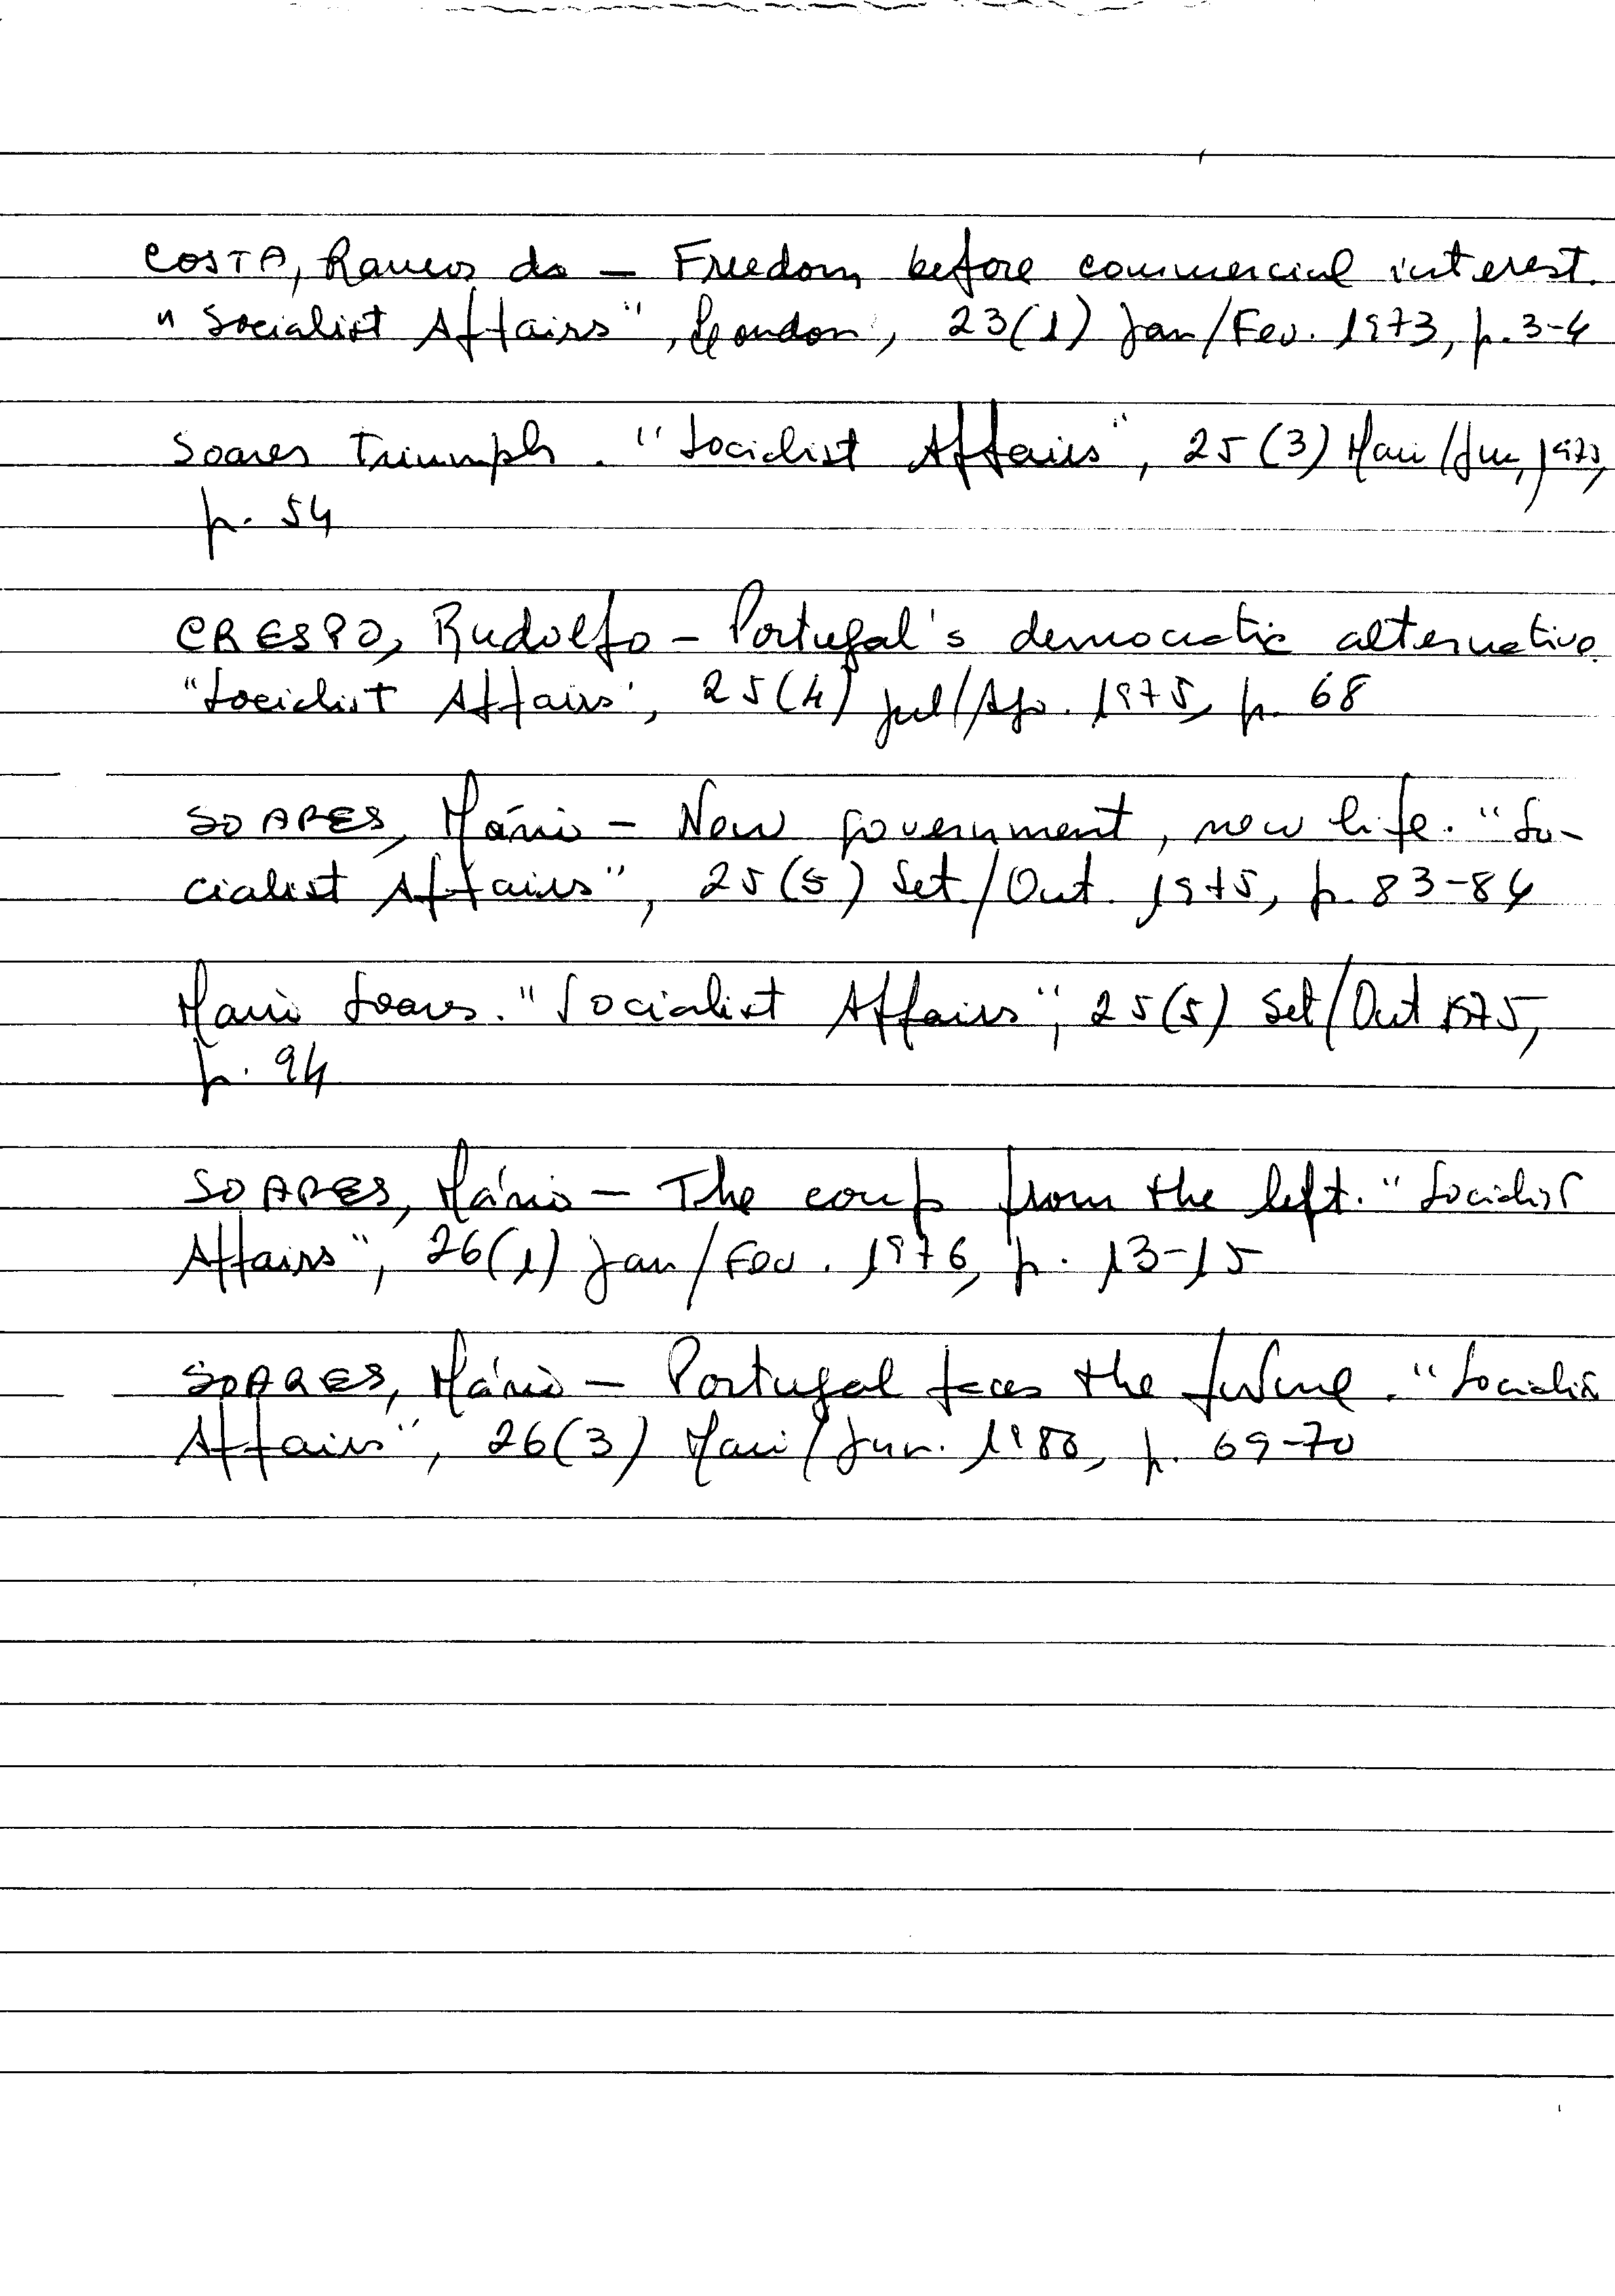 COSTA, Ramos da – Freedom before commercial interest.
"Socialist Affairs", London, 23(1) Jan/Fev. 1973, p. 3-4
Soares triumph. "Socialist Affairs", 25(3) Mai/Jun, 1975,
p. 54
CRESPO, Rudolfo – Portugal's democratic alternative.
"Socialist Affairs", 25(4) Jul/Ago. 1975, p. 68
SOARES, Mário – New government, new life. "So-
cialist Affairs", 25(5) Set./Out. 1975, p. 83-84
Mario Soares. "Socialist Affairs", 25(5) Set/Out 1975,
p. 94
SOARES, Mário – The coup from the left. "Socialist
Affairs", 26(1) Jan/Fev. 1976, p. 13-15
SOARES, Mário – Portugal faces the future. "Socialist
Affairs", 26(3) Mai/Jun. 1980, p. 69-70